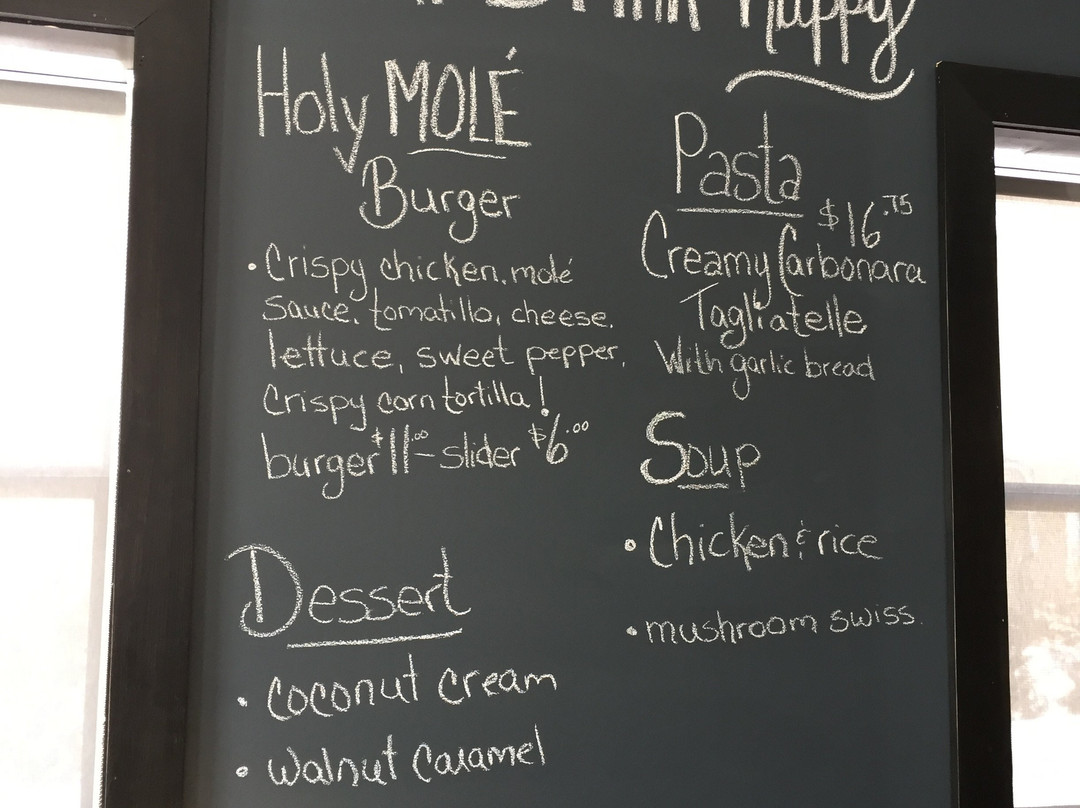 Drink Happy
Holy MOLÉ
Burger
• Crispy chicken, molé
sauce, tomatillo, cheese,
lettuce, sweet pepper,
Crispy corn tortilla!
burger $11.00 - slider $6.00
Dessert
• coconut cream
• walnut caramel
Pasta
$16.75
Creamy Carbonara
Tagliatelle
With garlic bread
Soup
• Chicken & rice
• mushroom swiss